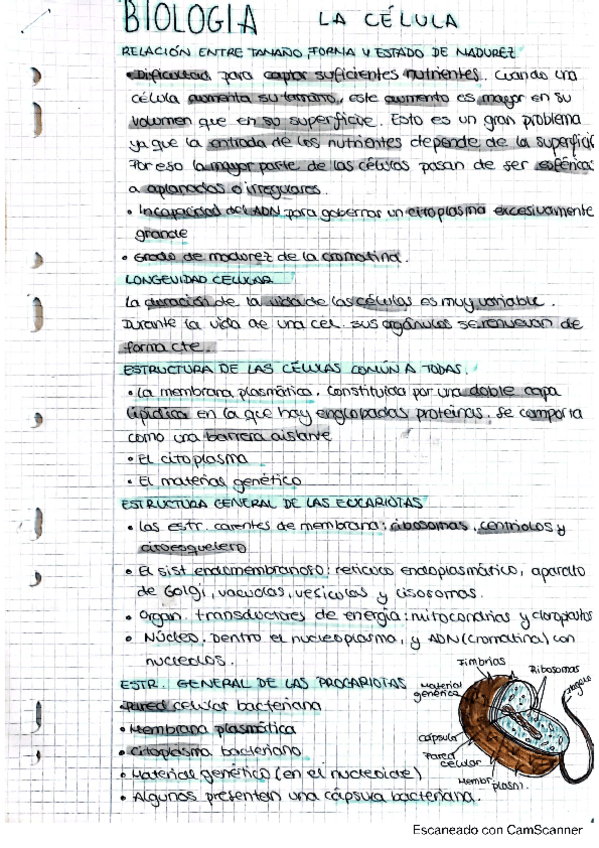 BIOLOGIA LA CÉLULA
RELACIÓN ENTRE TAMAÑO, FORMA Y ESTADO DE MADUREZ
• Dificultad para captar suficientes nutrientes. Cuando una
célula aumenta su tamaño, este aumento es mayor en su
volumen que en su superficie. Esto es un gran problema
ya que la entrada de los nutrientes depende de la superficie
Por eso la mayor parte de las células pasan de ser esféricas
a aplanadas o irregulares.
• Incapacidad del ADN para gobernar un citoplasma excesivamente
grande
• Grado de madurez de la cromatina.
LONGEVIDAD CELULAR
La duración de la vida de las células es muy variable.
Durante la vida de una cel. sus orgánulos se renuevan de
forma cte.
ESTRUCTURA DE LAS CÉLULAS COMÚN A TODAS.
• La membrana plasmática. Constituida por una doble capa
lipídica en la que hay englobadas proteínas. Se comporta
como una barrera aislante
• El citoplasma
• El material genético
ESTRUCTURA GENERAL DE LAS EUCARIOTAS
• Las estr. carentes de membrana: ribosomas, centriolos y
citoesqueleto
• El sist endomembranoso: retículo endoplasmático, aparato
de Golgi, vacuolas, vesículas y lisosomas.
• Organ. transductores de energía: mitocondrias y cloroplastos
• Núcleo. Dentro el nucleoplasma, y ADN (cromatina) con
nucleolos.
ESTR. GENERAL DE LAS PROCARIOTAS
• Pared celular bacteriana
• Membrana plasmática
• Citoplasma bacteriano
• Material genético (en el nucleoide)
• Algunos presentan una cápsula bacteriana.
Fimbrias
Ribosomas
Material
genético
Flagelo
cápsula
Pared
celular
Membr. plasm.
Escaneado con CamScanner